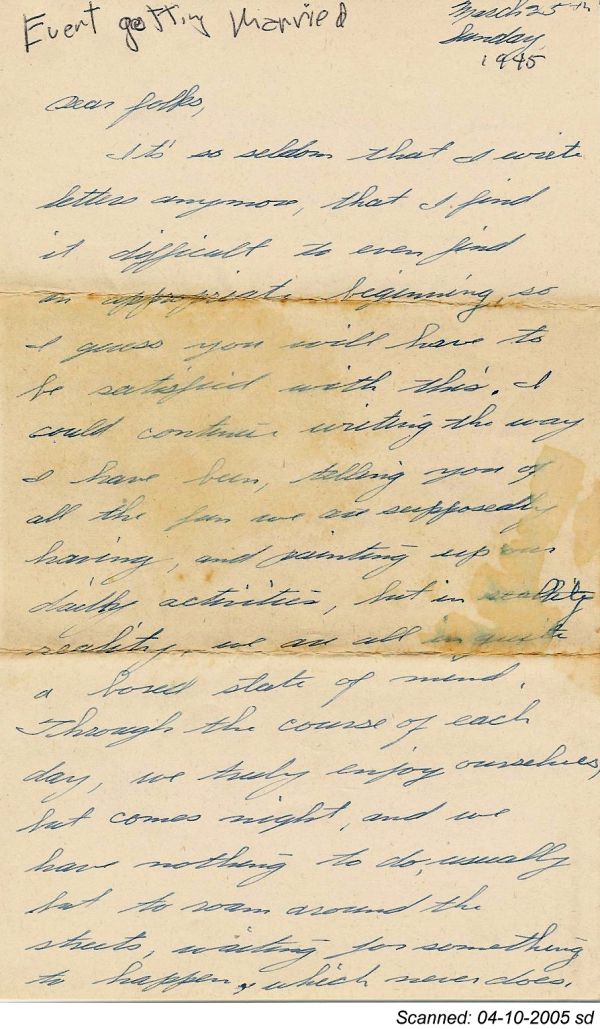 Evert getting Married
March 25th
Sunday
1945
Dear folks,
It's so seldom that I write
letters anymore, that I find
it difficult to even find
an appropriate beginning, so
I guess you will have to
be satisfied with this. I
could continue writing the way
I have been, telling you of
all the fun we are supposedly
having, and painting up our
daily activities, but in reality
reality, we are all in quite
a bored state of mind.
Through the course of each
day, we truly enjoy ourselves,
but comes night, and we
have nothing to do, usually
but to roam around the
streets, waiting for something
to happen, which never does.
Scanned: 04-10-2005 sd